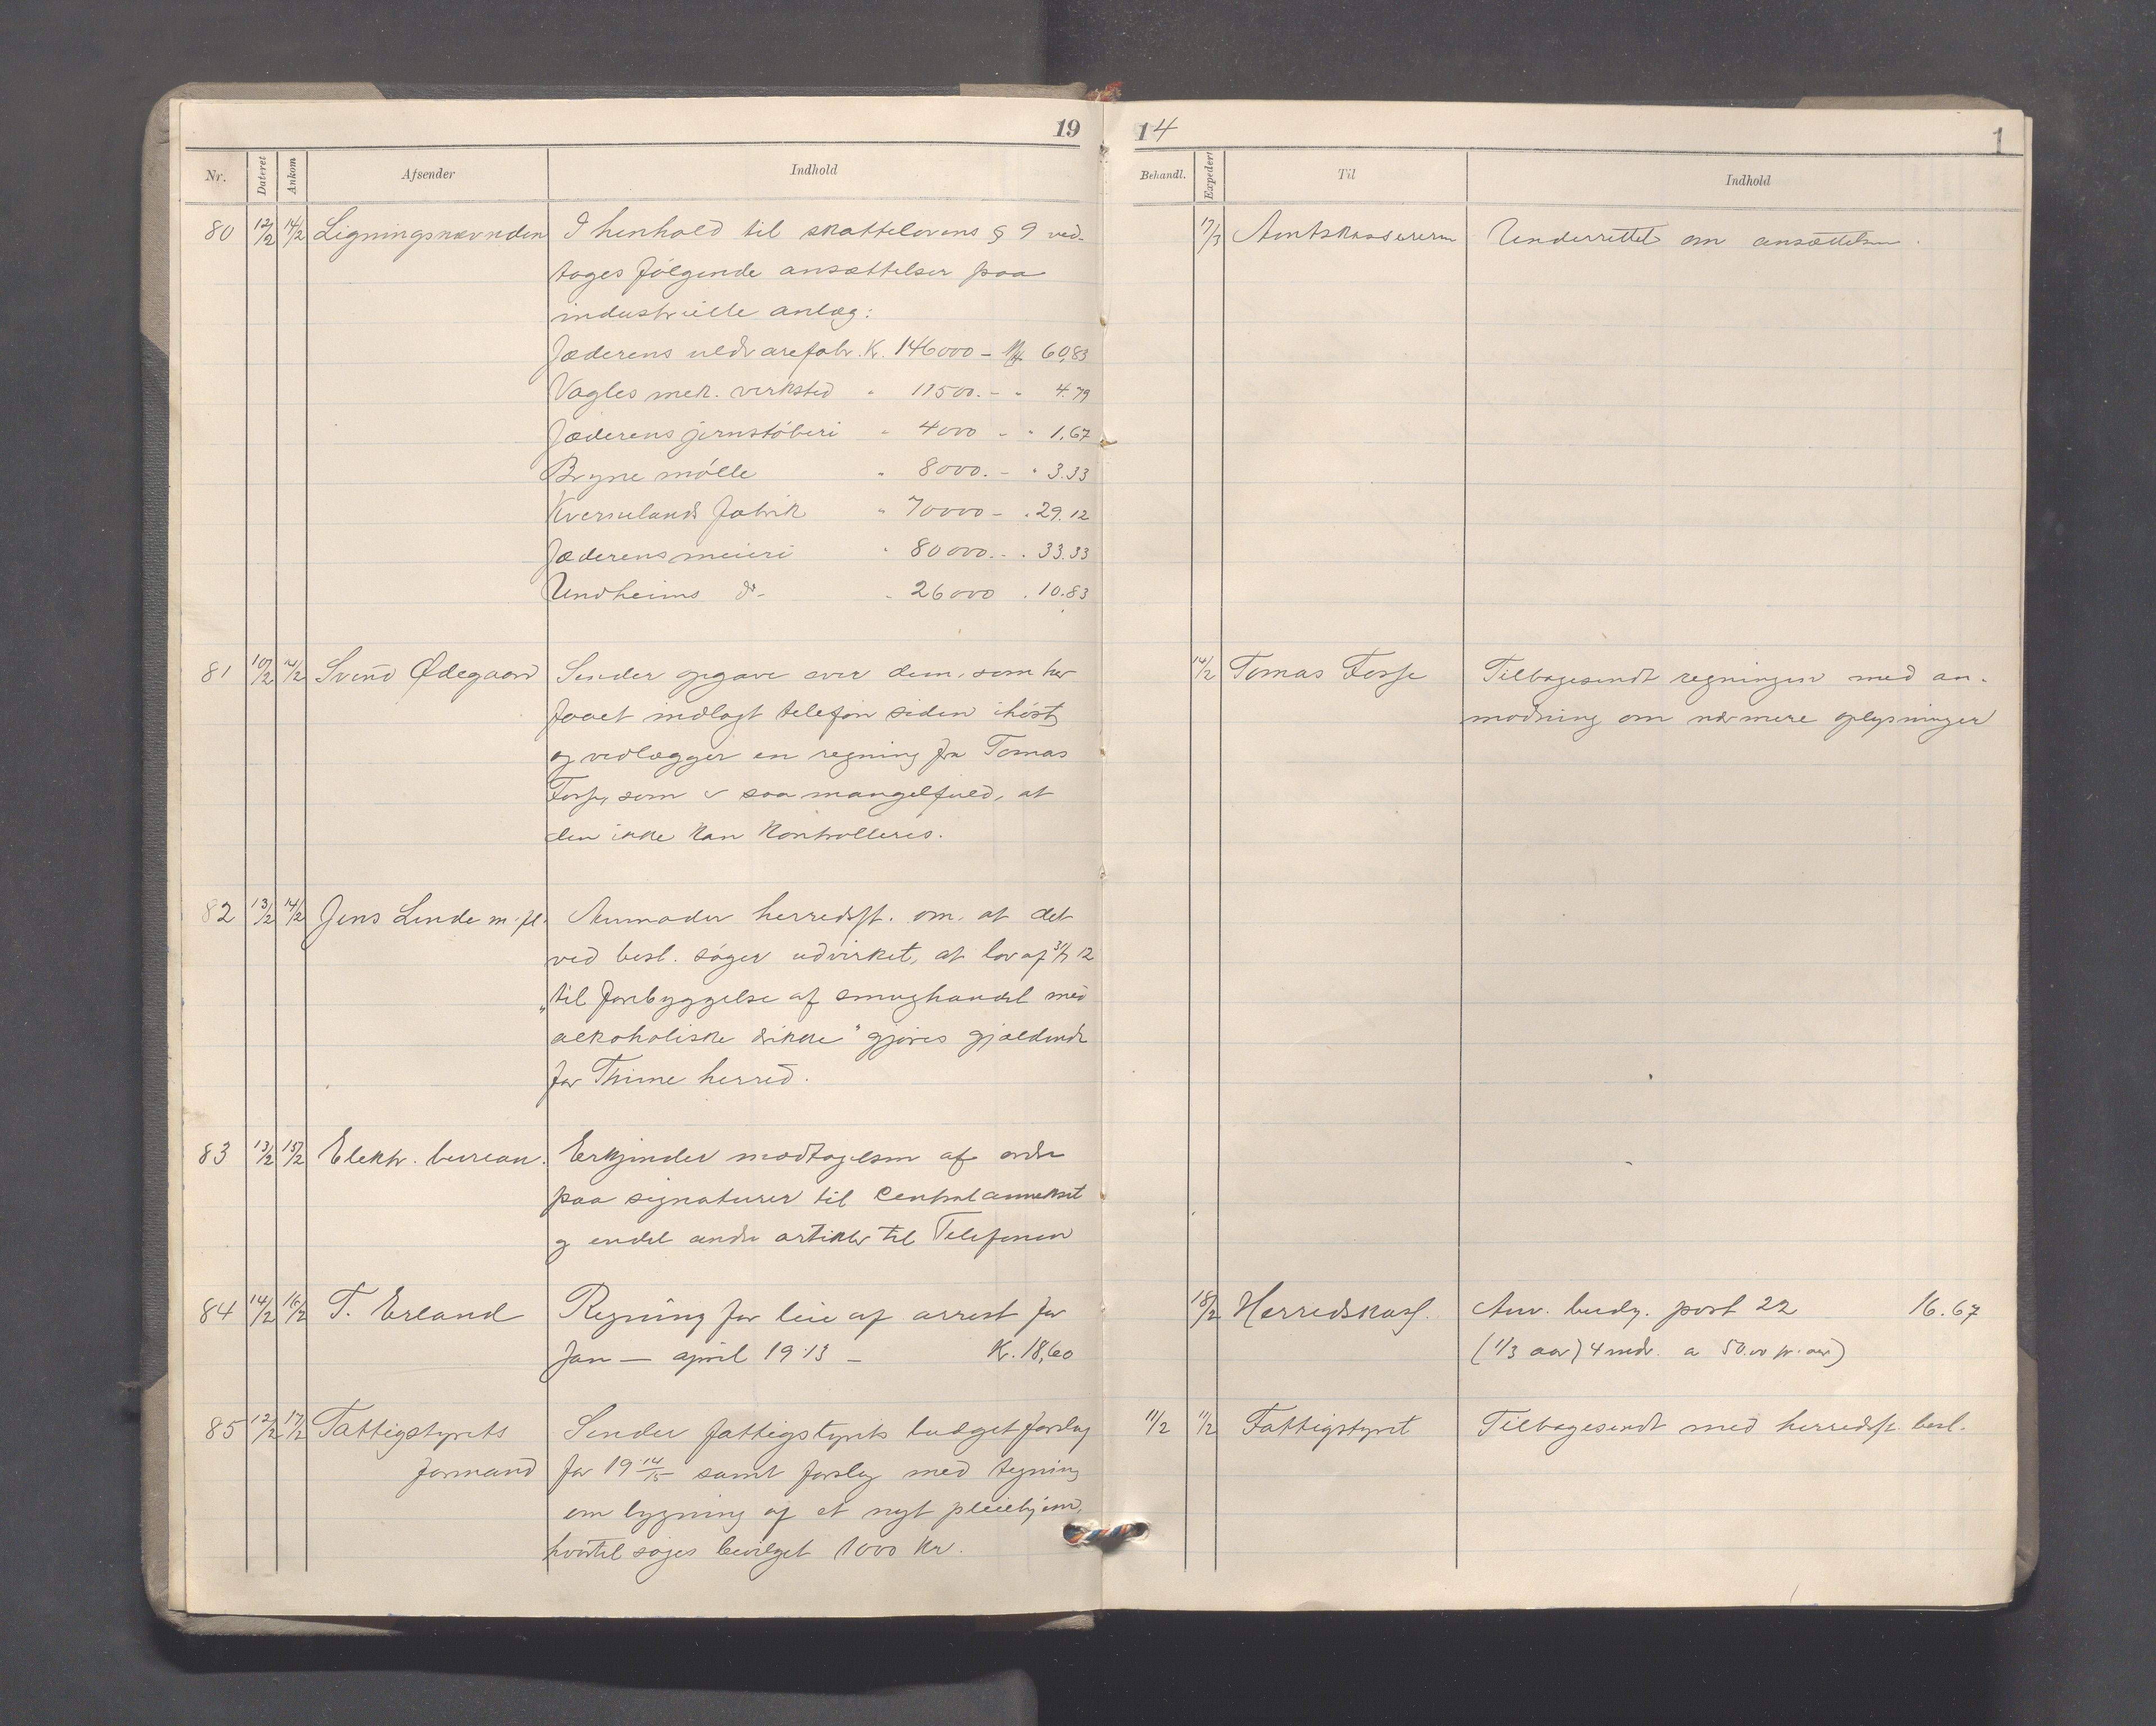 19
14
1
Nr. Dateret Ankom Afsender Indhold
Behandl. Expedert Til Indhold
80 12/2 14/2 Ligningsnævnden I henhold til skattelovens § 9 ved-
tages følgende ansættelser paa
industrielle anlæg:
Jæderens uldvarefabr. K. 146000 – 60,83
Vagles mek. verksted " 11500. – " 4.79
Jæderens jernstøberi " 4000 - " 1.67
Bryne mølle " 8000. – " 3.33
Kvernelands fabrik " 70000 – " 29.12
Jæderens meieri " 80000. - " 33.33
Undheims do - " 26000 " 10.83
17/3 Amtskassereren Underrettet om ansættelsen.
81 10/2 14/2 Svend Ødegaard Sender opgave over dem, som har
faaet indlagt telefon siden ihøst
og vedlægger en regning fra Tomas
Fosse, som er saa mangelfuld, at
den ikke kan kontrolleres.
14/2 Tomas Fosse Tilbagesendt regningen med an-
modning om nærmere oplysninger
82 13/2 14/2 Jens Linde m. fl. Anmoder herredsst. om, at det
ved besl. søger udvirket, at lov af 12
"til forebyggelse af smughandel med
alkoholiske drikke" gjøres gjældende
for Thime herred.
83 13/2 15/2 Elektr. bureau. Erkjender modtagelsen af ordre
paa signaturer til Centralannekset
og endel andre artikler til Telefonen
84 14/2 16/2 T. Erland Regning for leie af arrest for
Jan — april 1913 – Kr. 18,60
18/2 Herredskass. Anv. budg. post 22 16.67
(1/3 aar) 4 mdr. a 50.00 pr. aar)
85 12/2 17/2 Fattigstyrets Sender fattigstyrets budgetforslag
formand for 19 14/15 samt forslag med tegning
om bygning af et nyt pleiehjem,
hvortil søges bevilget 1000 kr.
11/2 11/2 Fattigstyret Tilbagesendt med herredsst. besl.